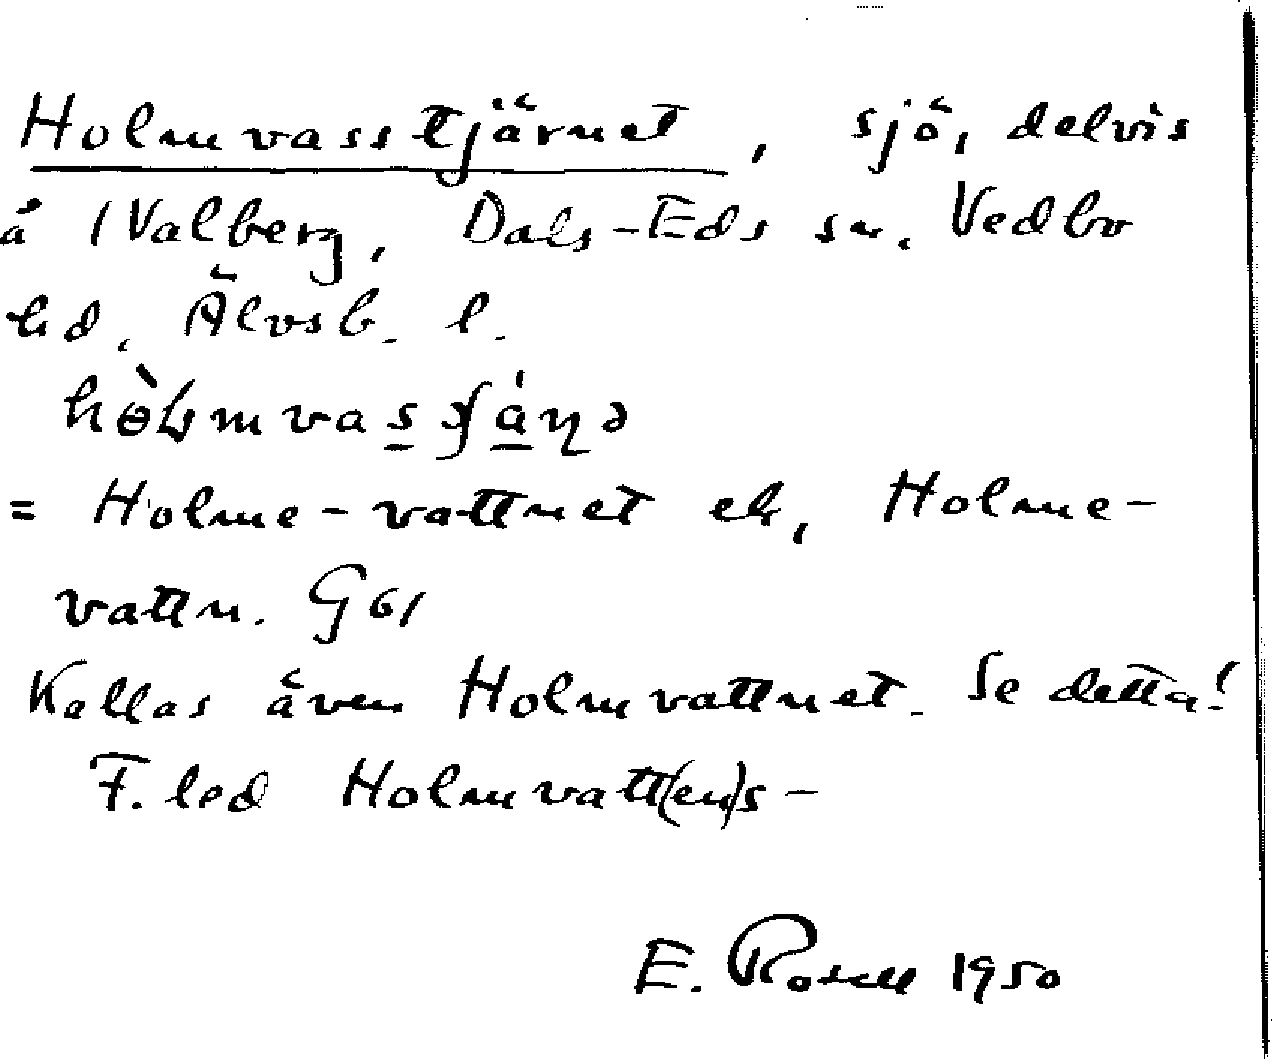 Holmvasstjärnet, sjö, delvis
å 1 Valberg, Dals-Eds sn. Vedbo
hd. Älvsb. l.
= Holme-vattnet el., Holme-
vattn. G 61
Kallas även Holmvattnet. Se detta!
F. led Holmvatt(en)s-
E. Rosell 1950